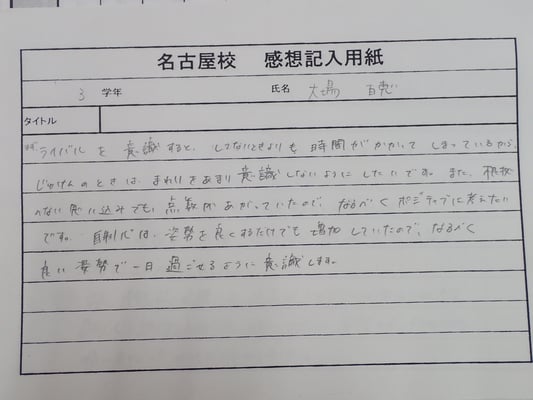 名古屋校 感想記入用紙
3 学年 氏名 大場
タイトル
まず ライバルを意識すると、してないときよりも時間がかかってしまっているから、
じゅけんのときは、まわりをあまり意識しないようにしたいです。また、根拠
のない思い込みでも、点数があがっていたので、なるべくポジティブに考えたい
です。自制心は、姿勢を良くするだけでも増加していたので、なるべく
良い姿勢で一日過ごせるように意識します。